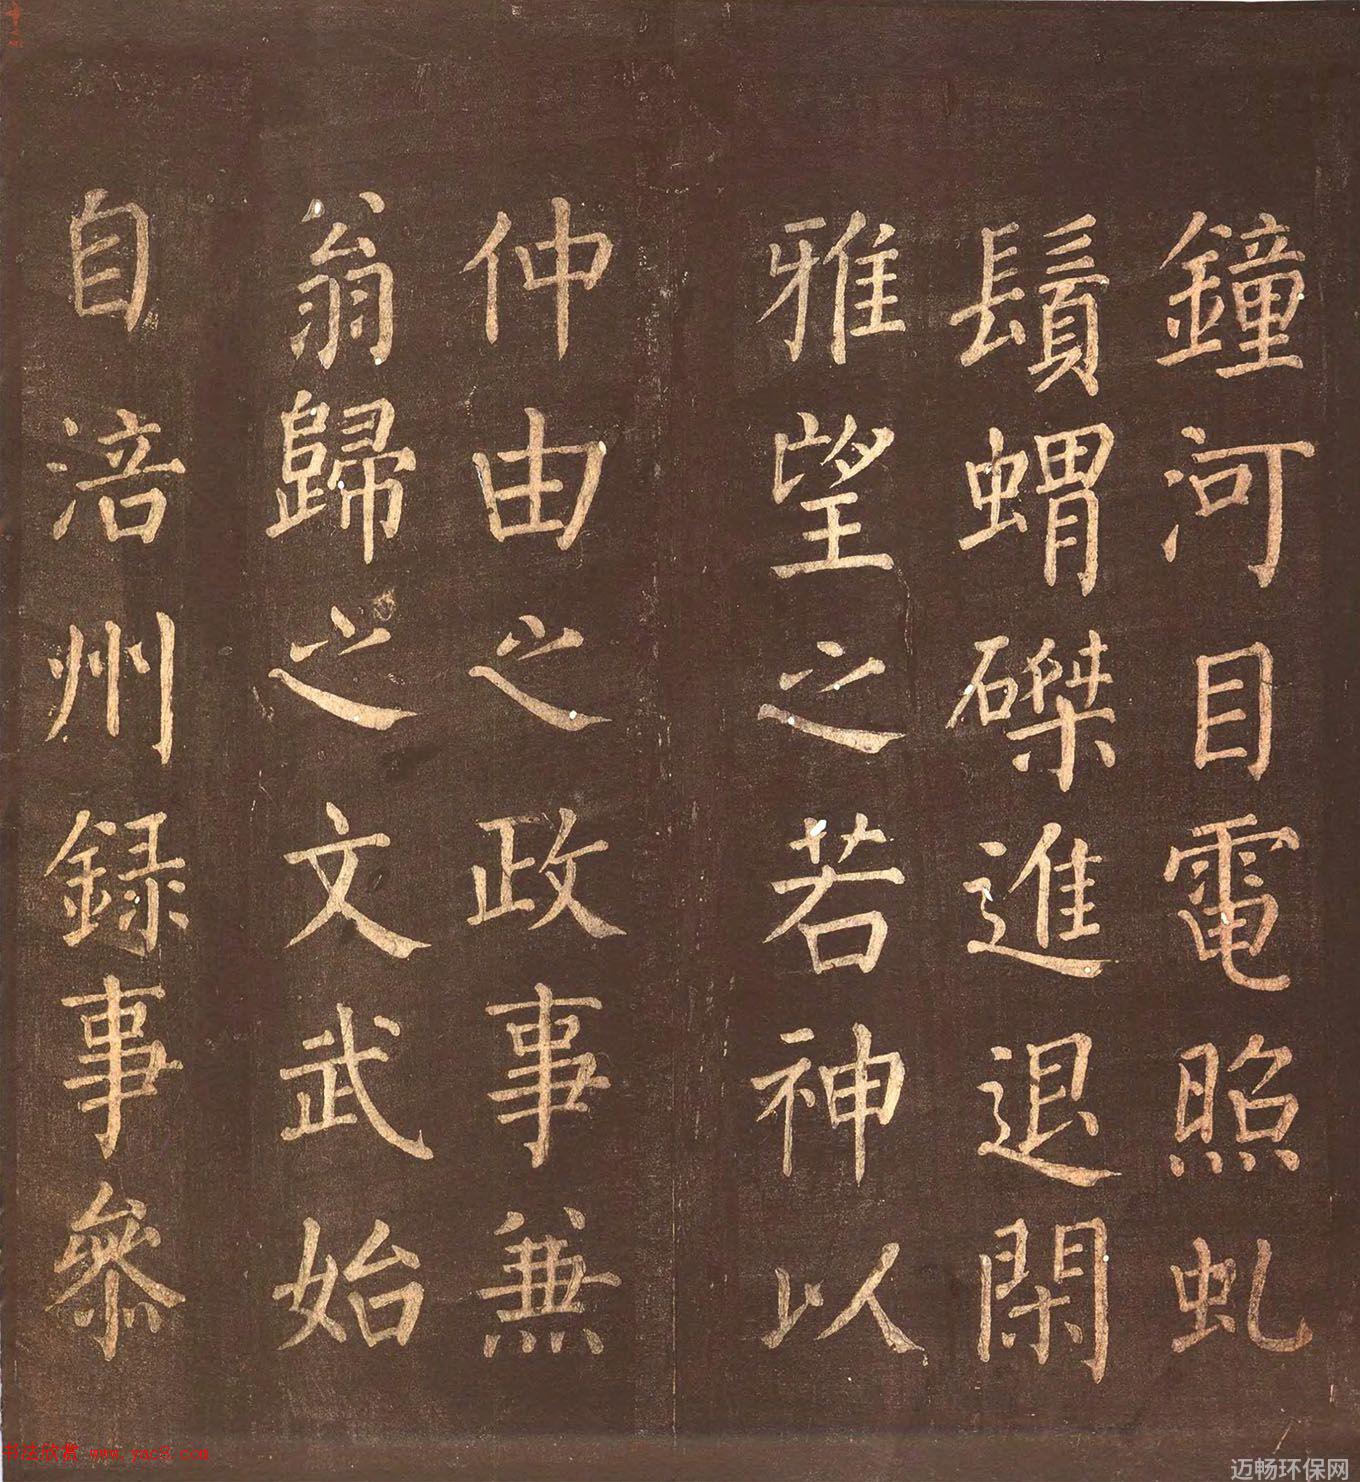 鐘河目電照虬
鬚蝟磔進退閑
雅望之若神以
仲由之政事兼
翁歸之文武始
自涪州録事參
书法欣赏 www.yac8.com
迈畅环保网